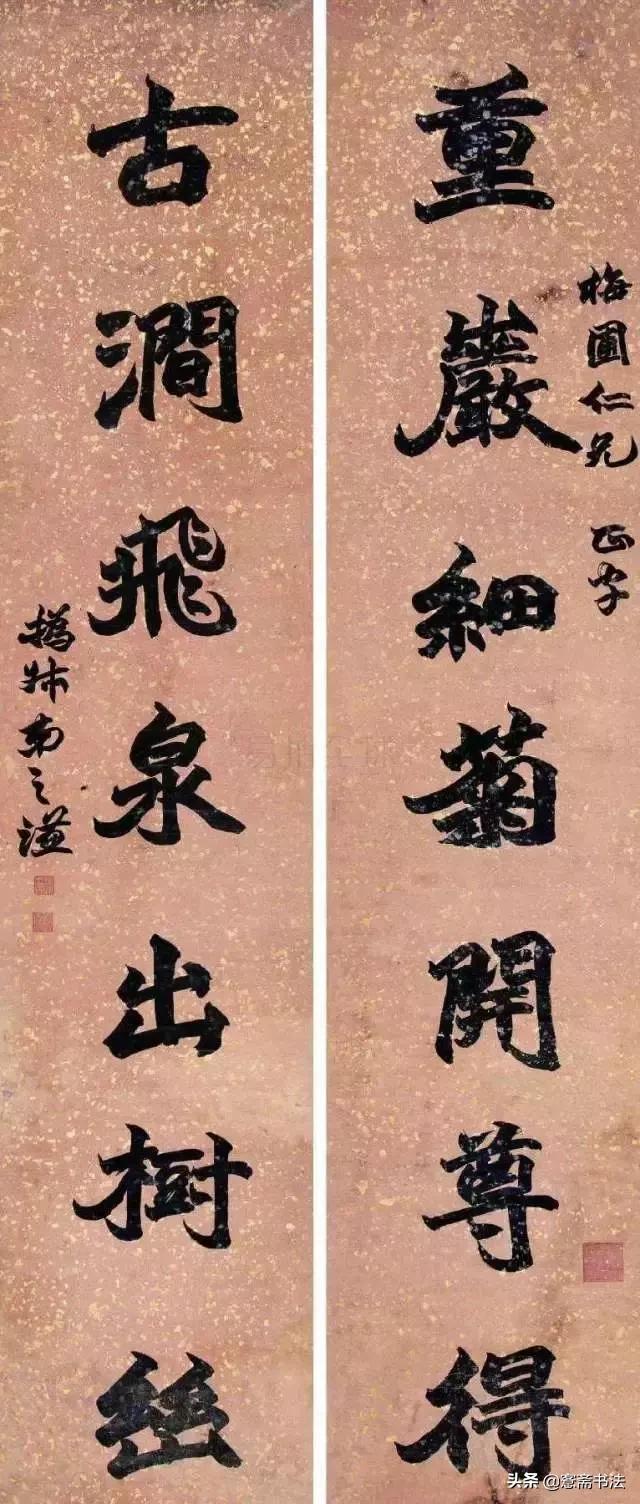 重巖細菊開尊得
梅圃仁兄 正字
古澗飛泉出樹
撝叔弟之謙
头条 @愙斋书法